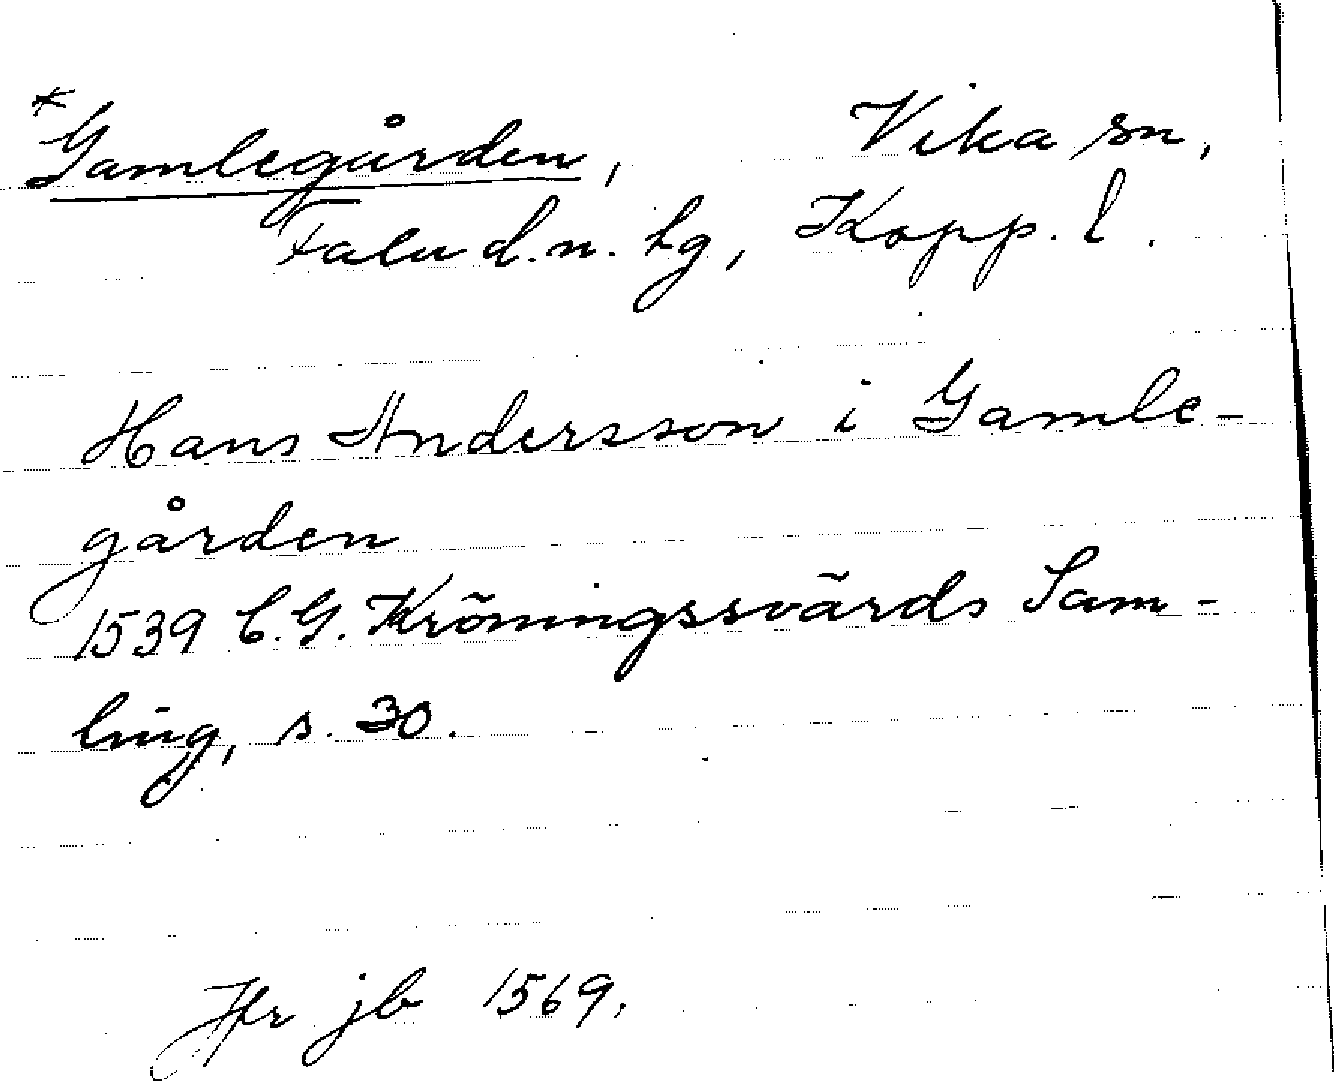 *Gamlegården, Vika sn,
Falu d.n. hg, Kopp. l.
Hans Andersson i Gamle-
gården
1539 C.G. Kröningssvärds Sam-
ling, s. 30.
Jfr jb 1569.